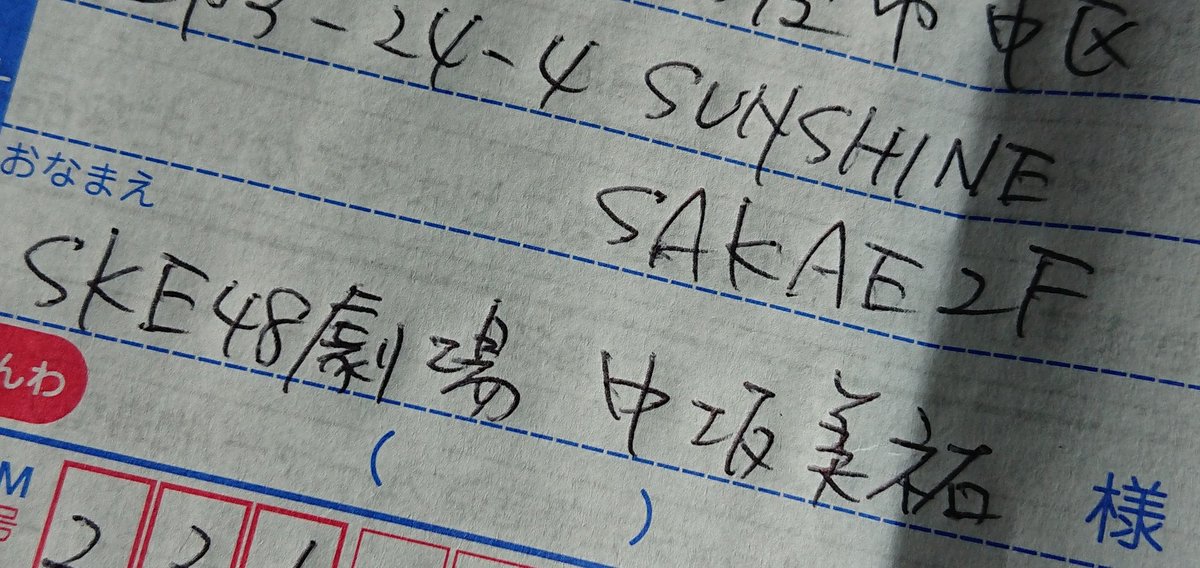 市中区
3-24-4 SUNSHINE
SAKAE 2F
おなまえ
SKE48劇場 中坂美祐 様
んわ
( )
M
号
2 2 1